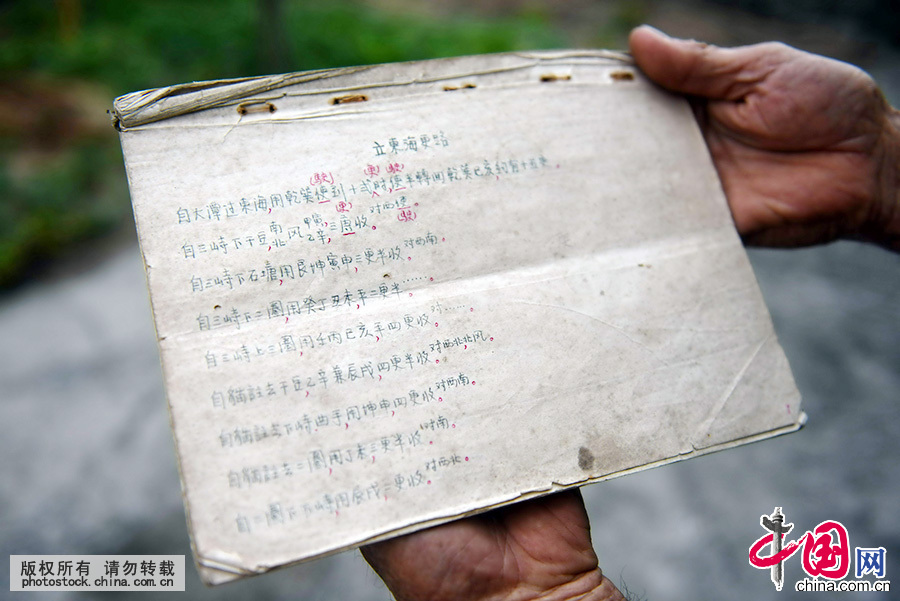 立東海更路
自大潭过東海,用乾巽使到十弍时使半轉回乾巽巳亥約有十五更。
自三峙下干豆,南北风甲庚乙辛,三更收。对西使。
自三峙下石塘,用艮坤寅申,三更半收。对西南。
自三峙上二圈,用癸丁丑未平二更半......。
自三峙上三圈,用壬丙巳亥平四更收。对......。
自猫註去干豆,乙辛兼辰戌,四更半收。对西北,北风。
自猫註去下峙曲手,用坤申,四更收。对西南。
自猫註去二圈,用丁未,三更半收。对南。
自二圈下下峙,用辰戌,二更收。对西北。
版权所有 请勿转载
photostock.china.com.cn
中国网
china.com.cn